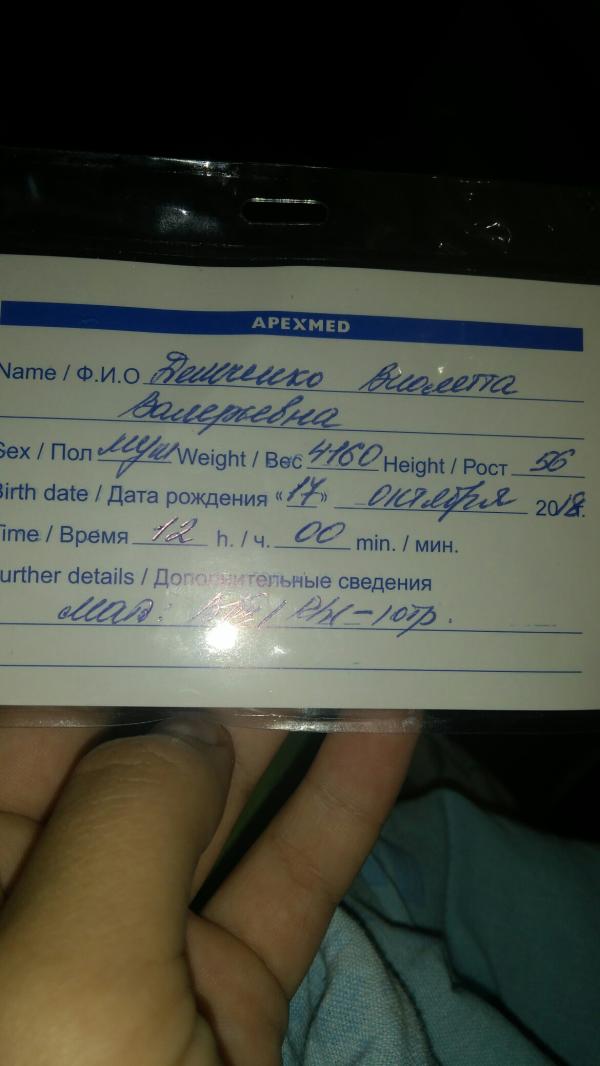 APEXMED
Name / Ф.И.О Демченко Виолетта
Валерьевна
Sex / Пол муж Weight / Вес 4160 Height / Рост 56
Birth date / Дата рождения «17» октября 2018.
Time / Время 12 h. / ч. 00 min. / мин.
urther details / Дополнительные сведения
Rh(-) отр.